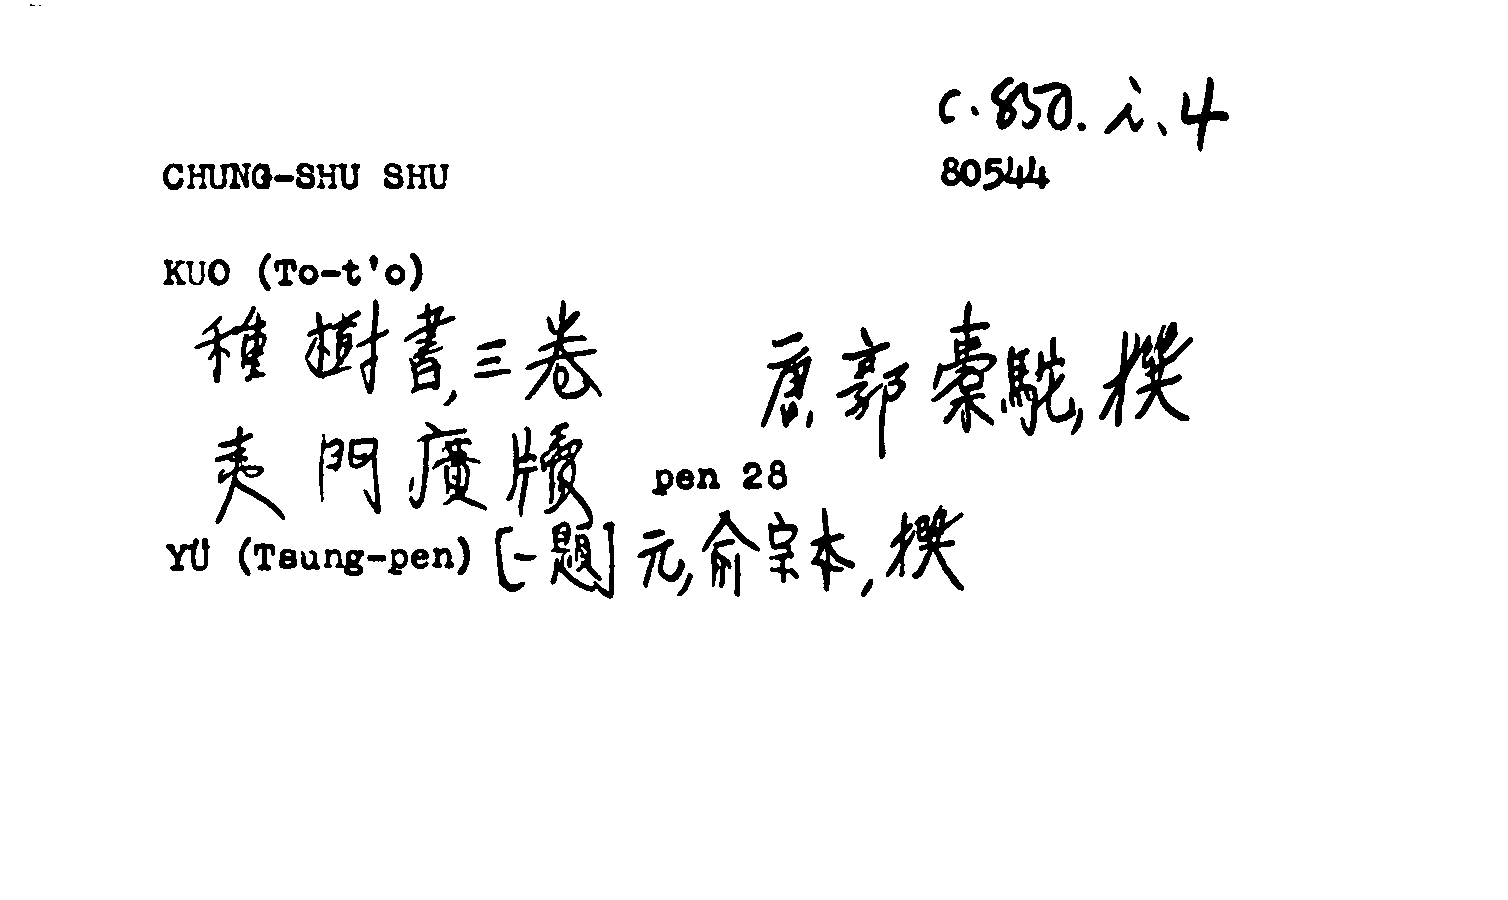 c.850.i.4
CHUNG-SHU SHU 80544
KUO (To-t'o)
種樹書,三卷 唐,郭橐駝,撰
夷門廣牘 pen 28
YÜ (Tsung-pen) [一題] 元,俞宗本,撰